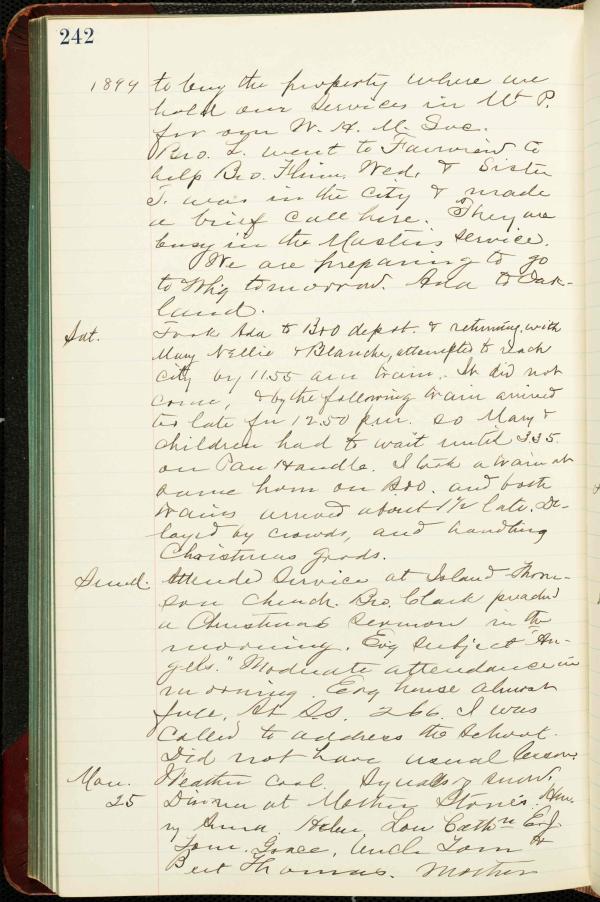 242
1894 to buy the property where we
hold our services in Mt P.
for our W. H. M. Soc.
Bro. L. went to Fairview to
help Bro. Wed. & Sister
T. was in the city & made
a brief call here. They are
busy in the Masters service.
We are preparing to go
to Whg tomorrow. Ada to Oak-
land.
Sat. Took Ada to B&O depot. & returning with
Mary Nellie & Blanche, attempted to reach
city by 11.55 am train. It did not
come, & by the following train arrived
too late for 12.50 p.m. so Mary &
children had to wait until 3.35.
on Pan Handle. I took a train &
came home on B&O. and both
trains arrived about 1 1/2 late. De-
layed by crowds, and handling
Christmas goods.
Sund. Attended Service at Island - Thom-
son Church. Bro. Clark preached
a Christmas sermon in the
morning. Evg subject "An-
gels." Moderate attendance in
morning. Evg house almost
full. At S.S. 266. I was
called to address the School.
Did not have usual lesson.
Mon. Weather cool. Squalls of snow.
25 Dinner at Mother Stone's. Hen-
ry Anna Helen, Lou Cathn E & J
Tom. Grace, Uncle Tom &
Bert Thomas. Mother